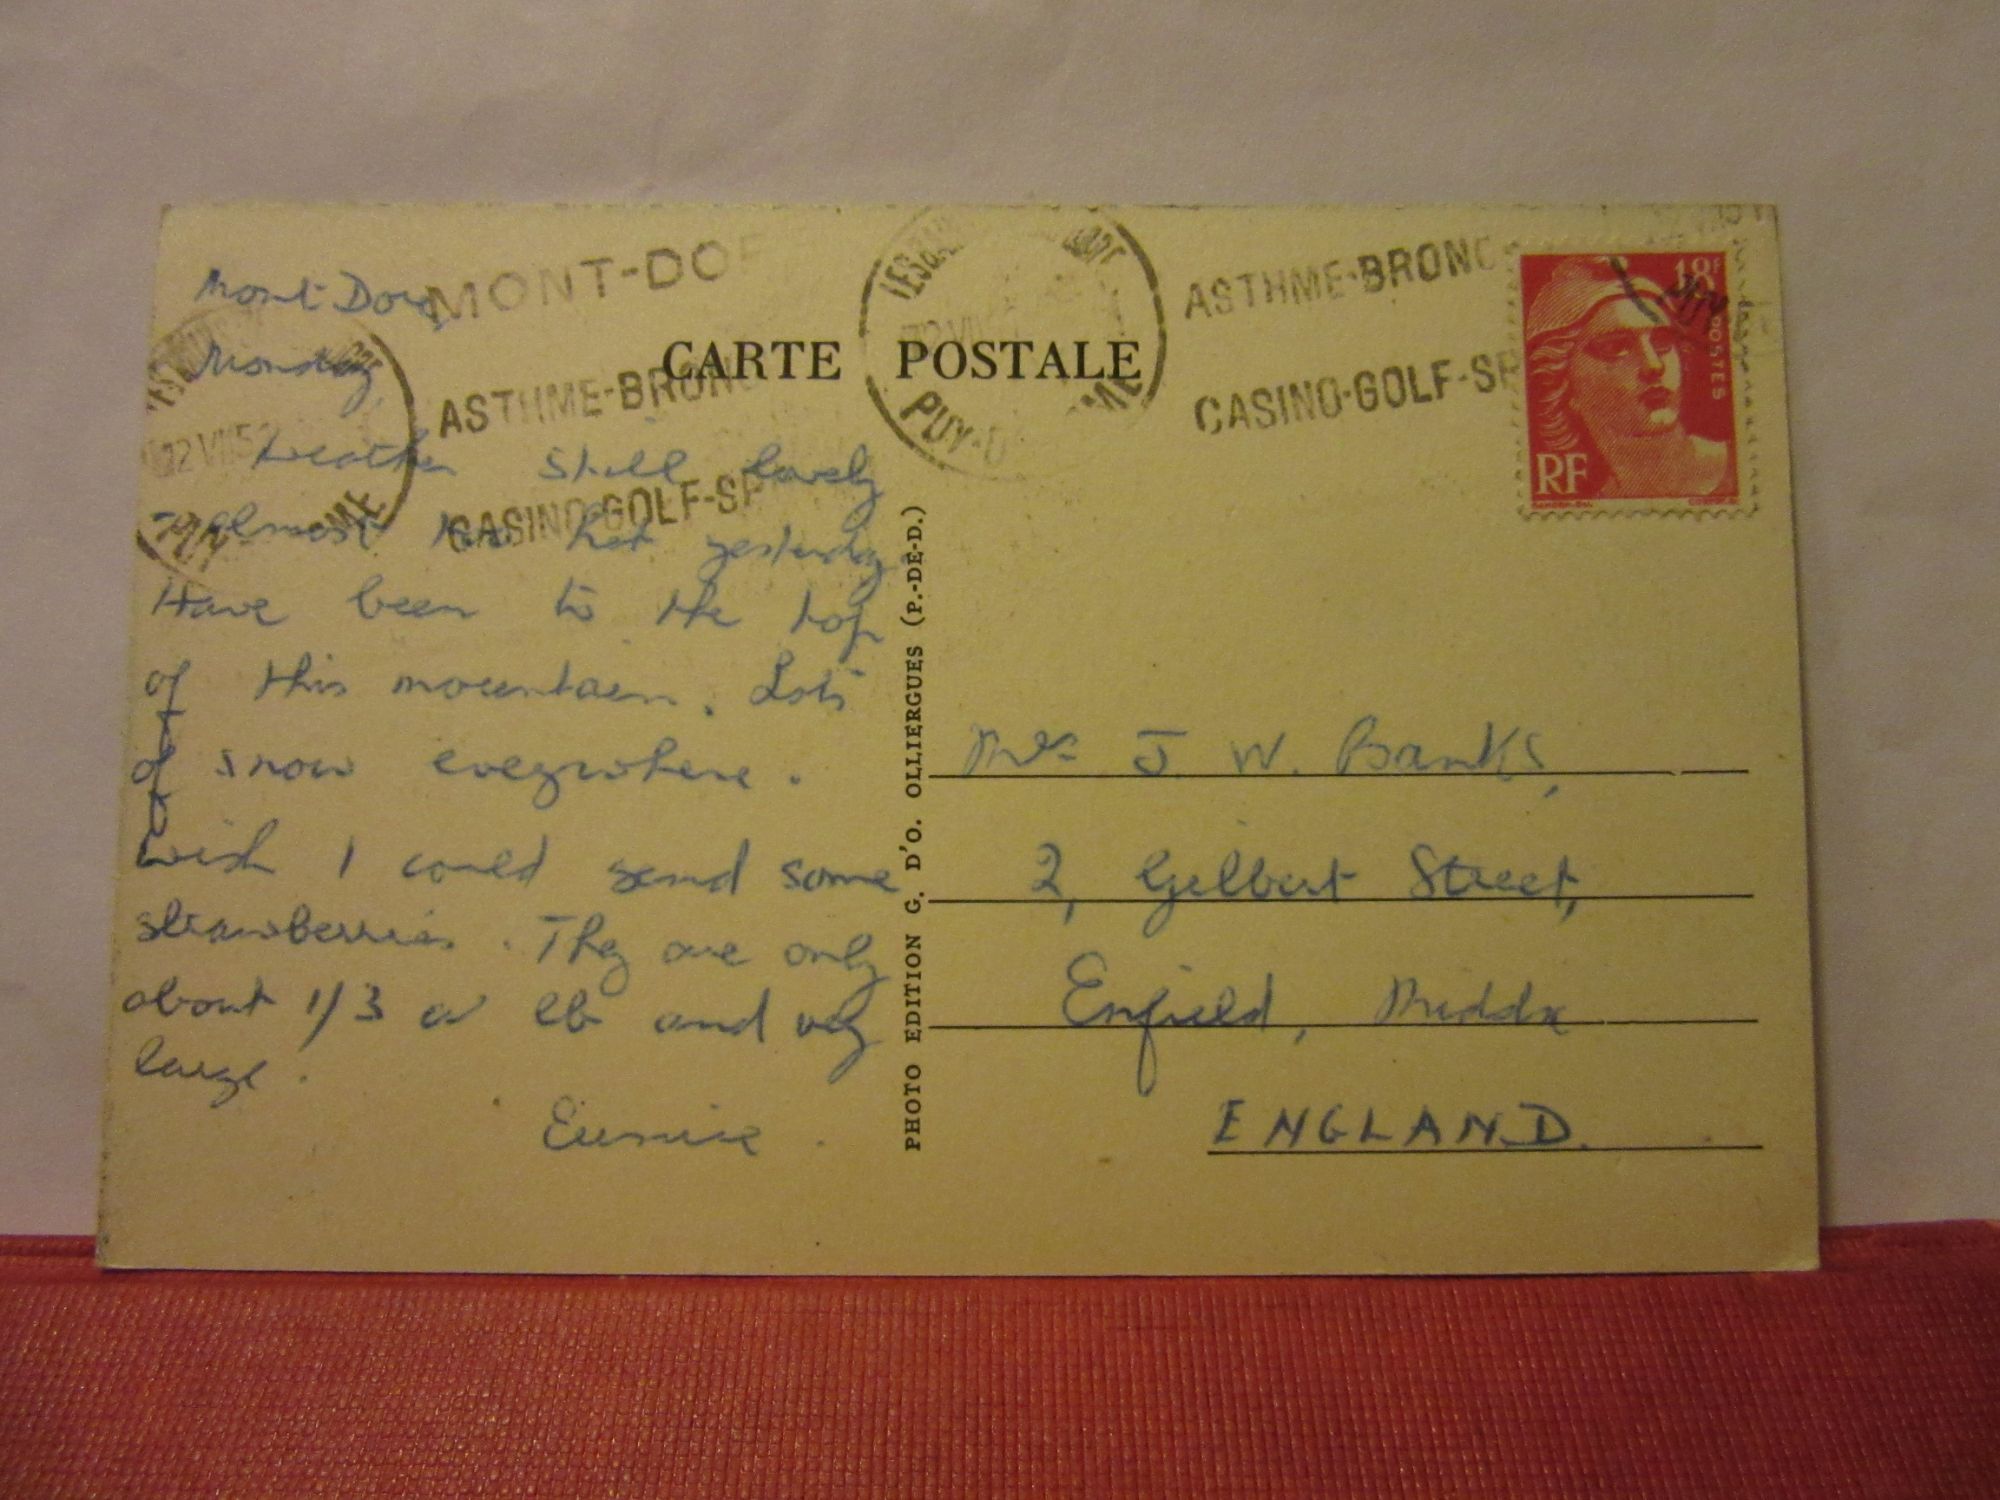 Mont Dore,
Monday,
Weather still lovely
- almost too hot yesterday.
Have been to the top
of this mountain. Lots
of snow everywhere.
Wish I could send some
strawberries. They are only
about 1/3 a lb and very
large.
Eunice.
MONT-DOR
ASTHME-BRONC
CASINO-GOLF-SP
CARTE POSTALE
PUY-D ME
ASTHME-BRONC
CASINO-GOLF-SP
18F
POSTES
RF
PHOTO EDITION G. D'O. OLLIERGUES (P.-DE-D.)
Mrs J. W. Banks,
2, Gilbert Street,
Enfield, Middx
ENGLAND.